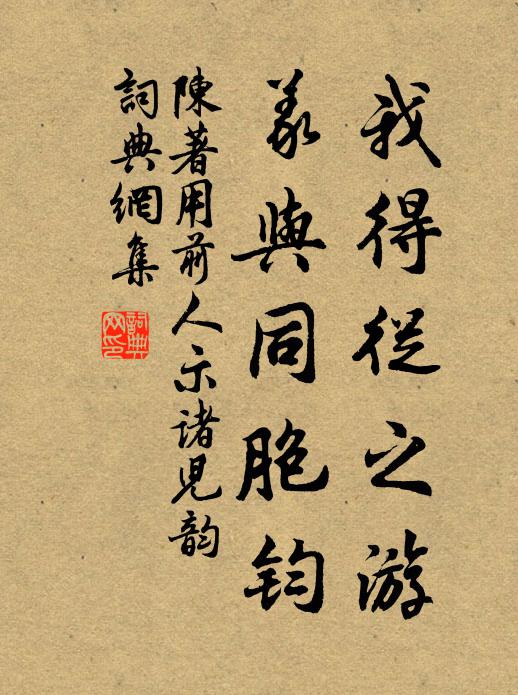 我得從之游
義與同胞鈞
陳著用前人示諸兒韵
詞典網集
詞典网印